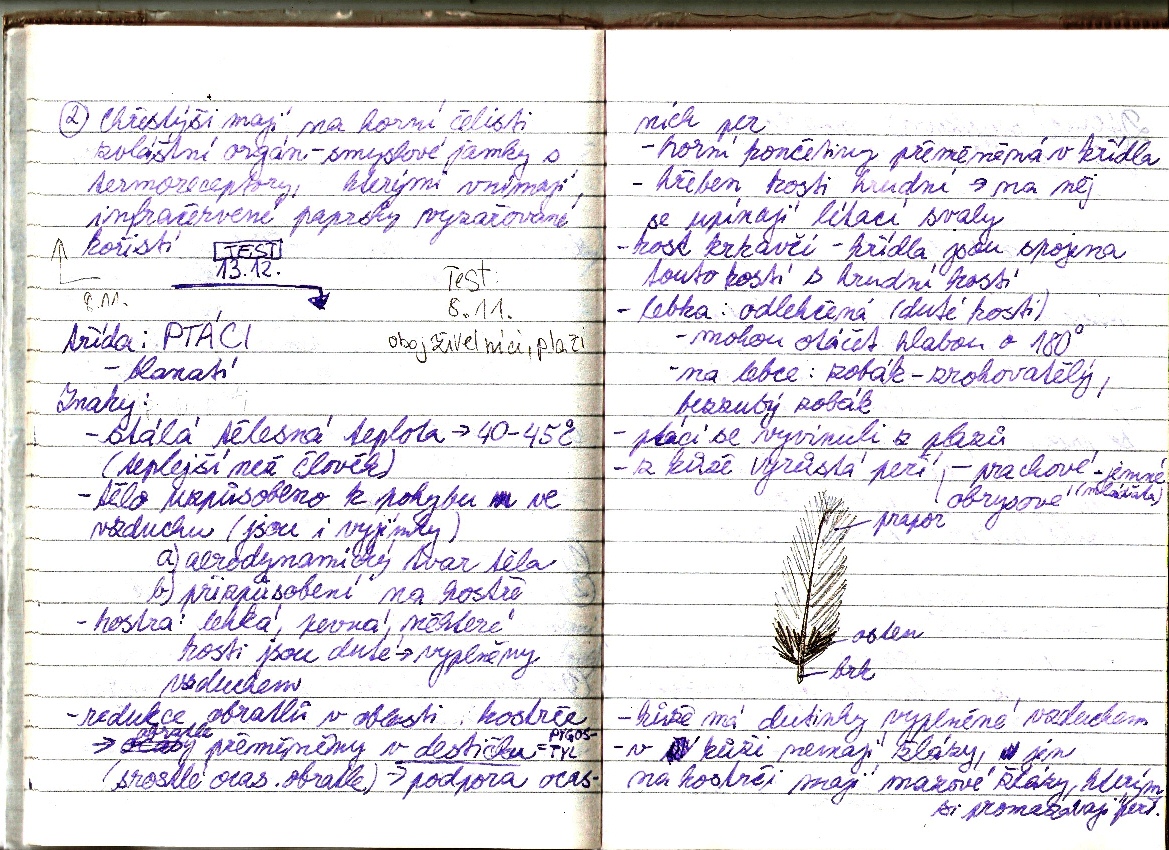 ② Chřestýši mají na horní čelisti
zvláštní orgán - smyslové jamky s
termoreceptory, kterými vnímají
infračervené paprsky vyzařované
kořistí
TEST
13.12.
8.11.
Test:
8.11.
obojživelníci, plazi
třída: PTÁCI
- blanatí
Znaky:
- stálá tělesná teplota → 40-45°C
(teplejší než člověk)
- tělo uzpůsobeno k pohybu ve
vzduchu (jsou i vyjímky)
a) aerodynamický tvar těla
b) přizpůsobení na kostře
- kostra: lehká, pevná, některé
kosti jsou duté → vyplněny
vzduchem
- redukce obratlů v oblasti kostrče
→ obratle přeměněny v destičku = PYGOS-
TYL
(srostlé ocas. obratle) → podpora ocas-
ních per
- horní končetiny přeměněná v křídla
- hřeben kosti hrudní → na něj
se upínají létací svaly
- kost krkavčí - křídla jsou spojena
touto kostí s hrudní kostí
- lebka: odlehčená (duté kosti)
- mohou otáčet hlavou o 180°
- na lebce: zobák - zrohovatělý,
bezzubý zobák
- ptáci se vyvinuli z plazů
- z kůže vyrůstá peří - prachové - jemné
obrysové (mláďata)
prapor
osten
brk
- kůže má dutinky vyplněné vzduchem
- v kůži nemají žlázy, jen
na kostrči mají mazové žlázy, kterým
si promazávají peří.